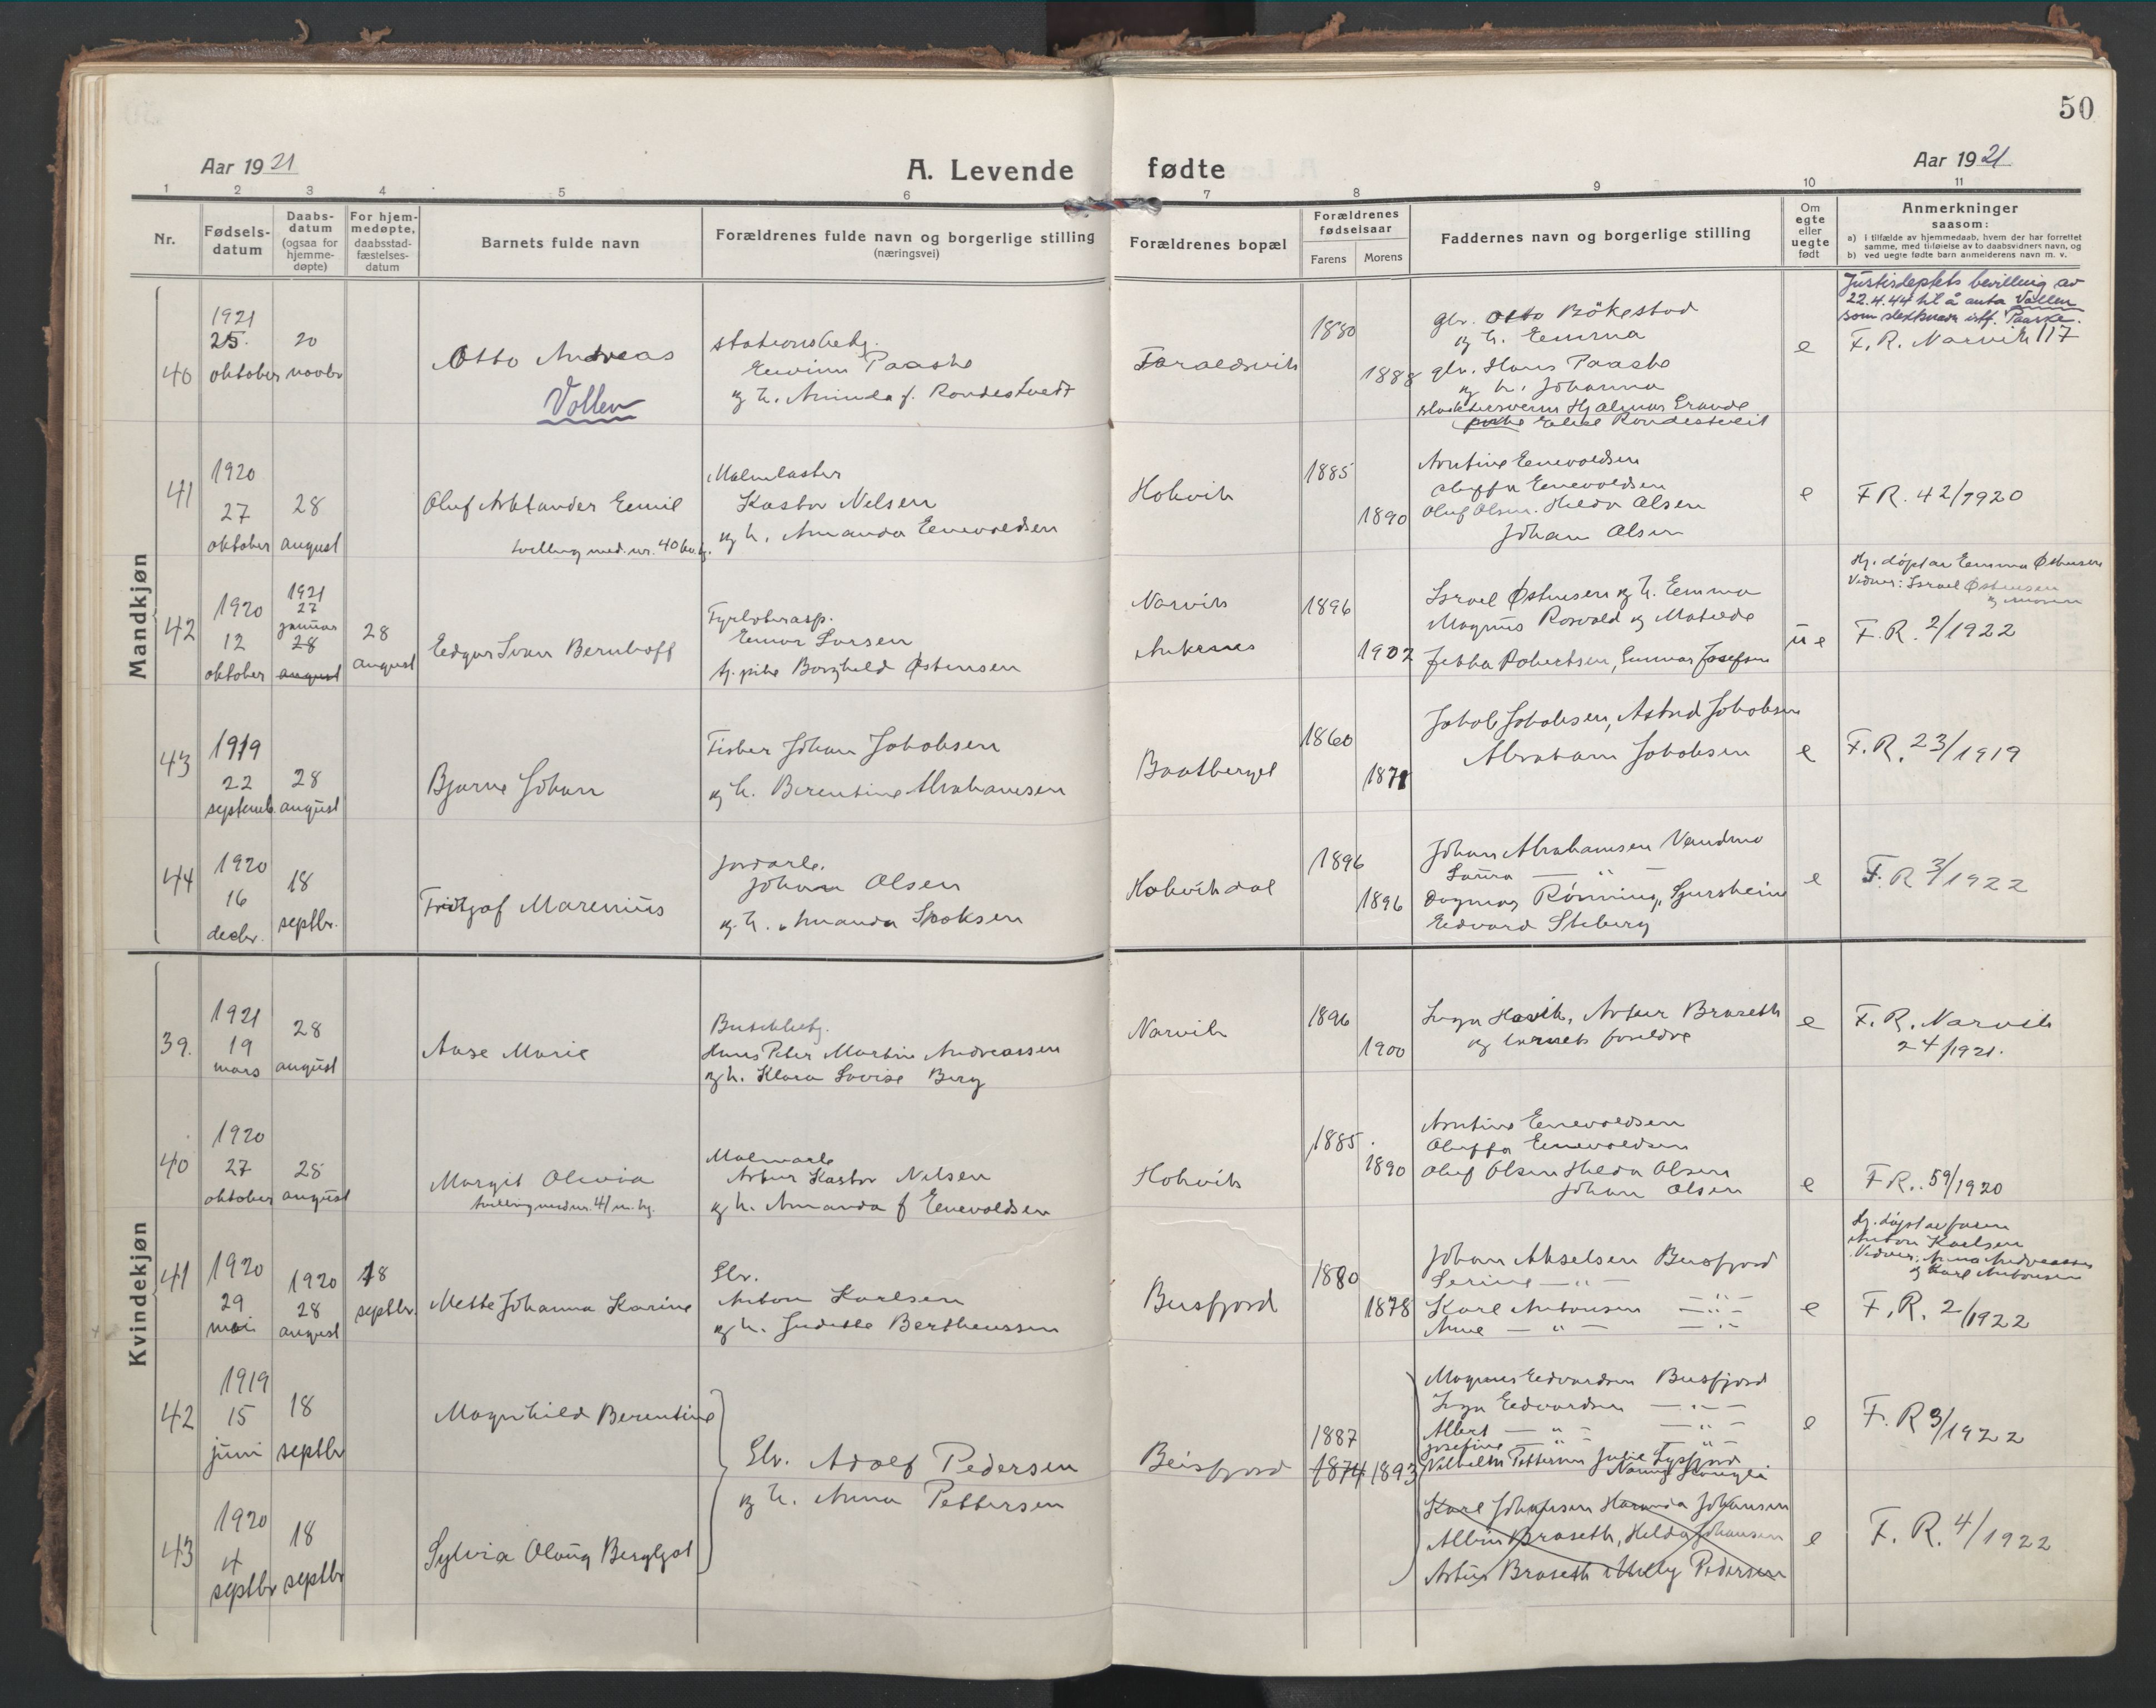 50
Aar 1921
A. Levende fødte
Aar 1921
1 2 3 4 5 6 7 8 9 10 11
Nr.
Fødsels-
datum
Daabs-
datum
(ogsaa for
hjemme-
døpte)
For hjem-
medøpte,
daabsstad-
fæstelses-
datum
Barnets fulde navn
Forældrenes fulde navn og borgerlige stilling
(næringsvei)
Forældrenes bopæl
Forældrenes
fødselsaar
Farens
Morens
Faddernes navn og borgerlige stilling
Om
egte
eller
uegte
født
Anmerkninger
saasom:
a) I tilfælde av hjemmedaab, hvem der har forrettet
samme, med tilføielse av to daabsvidners navn, og
b) ved uegte fødte barn anmelderens navn m. v.
Mandkjøn
40
1921
25.
oktober
20
novbr
Otto Andreas
Vollen
stationsbetj.
Paaske
og h. Aminda f. Rondestvedt
1880
1888
gbr. Otto Bökestad
og h. Emma
gbr. Hans Paaske
og h. Johanna
Hjalmar Erande
Rondestveit
e
Justisdeptets bevilling av
22.4.44 til å anta Vollen
som slektsnavn istf. Paaske.
F. R. Narvik 117
41
1920
27
oktober
28
august
Oluf Arktander Emil
tvilling med nr. 40 kv.kj.
Malmlaster
Kastor Nilsen
og h. Amanda Enevoldsen
Hokvik
1885
1890
Arntine Enevoldsen
Oluffa Enevoldsen
Oluf Olsen. Hilda Olsen
Johan Olsen
e
F R. 42/1920
42
1920
12
oktober
1921
27
januar
28
august
28
august
Edgar Ivan Bernhoff
Fyrbøterasp.
Einar Larsen
og pike Borghild Østensen
Narvik
Ankenes
1896
1902
Israel Østensen og h. Emma
Magnus Rosvold og Matilde
Jebba Robertsen, Gunnar Josefsen
u e
Hj. døpt av Emma Østensen
Vidner: Israel Østensen
og moren
F. R. 2/1922
43
1919
22
septemb.
28
august
Bjarne Johan
Fisker Johan Jakobsen
og h. Berentine Abrahamsen
Baatberget
1860
1871
Jakob Jakobsen, Astrid Jakobsen
Abraham Jakobsen
e
F. R. 23/1919
44
1920
16
decbr.
18
septbr.
Fridtjof Marenius
jordarb.
Johan Olsen
og h. Amanda Isaksen
Hokvikdal
1896
1896
Johan Abrahamsen Vandmo
Laura — " —
Dagmar Rønning, Sjursheim
Edvard Stiberg
e
F. R 3/1922
Kvindekjøn
39.
1921
19
mars
28
august
Aase Marie
Hans Peter Martin Andreassen
og h. Klara Lovise Berg
Narvik
1896
1900
Inga Hasvik, Artur Braseth
og barnets foreldre
e
F. R. Narvik
24/1921.
40
1920
27
oktober
28
august
Margit Olivia
tvilling med nr. 41 m. kj.
Malmarb
Artur Kastor Nilsen
og h. Amanda f Enevoldsen
Hokvik
1885.
1890
Arntine Enevoldsen
Oluffa Enevoldsen
Oluf Olsen Hilda Olsen
Johan Olsen
e
F R.. 59/1920
41
1920
29
mai
1920
28
august
18
septbr.
Mette Johanna Karine
Gbr.
Anton Karlsen
og h. Juditte Bertheussen
Beisfjord
1880
1878
Johan Akselsen Beisfjord
Serine — " —
Karl Antonsen — " —
Anne — " — — " —
e
Hj. døpt av faren
Anton Karlsen
Vidner: Anna Andreassen
og Karl Antonsen
F. R. 2/1922
42
1919
15
juni
18
septbr
Magnhild Berentine
Gbr. Adolf Pedersen
og h. Anna Pettersen
Beisfjord
1887
1874 1893
Magnus Edvardsen Beisfjord
Inga Edvardsen — " —
Albert — " — — " —
Josefine — " — — " —
Vilhelm Pettersen Julie Lysfjord
e
F. R 3/1922
43
1920
4
septbr
18
septbr
Sylvia Olaug Bergljot
Karl Johansen Johansen
Albin Braseth, Hilda Johansen
Artur Braseth Milly Pedersen
e
F. R. 4/1922